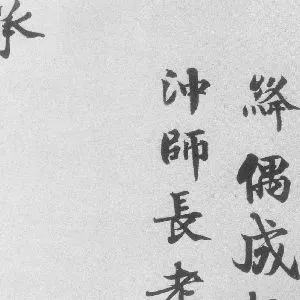 絳偶成
沖師長老
承